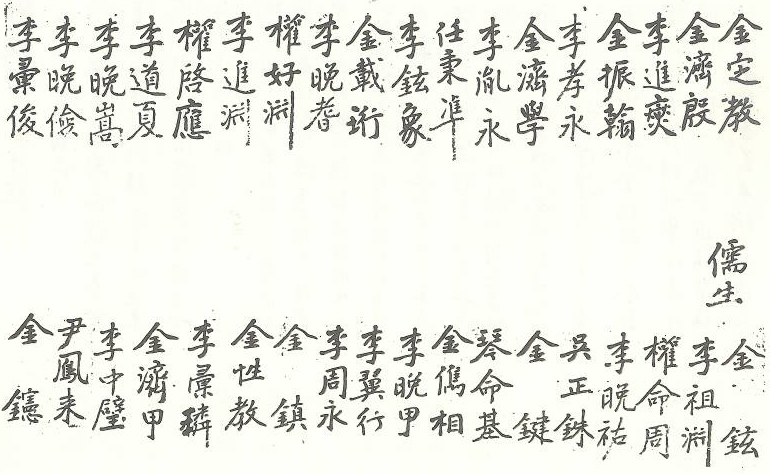 金定教
金濟殷
李進奭
金振翰
李孝永
金濟學
李胤永
任秉準
李鉉象
金載珩
李晩耆
權好淵
李進淵
權啓應
李道夏
李晩嵩
李晩儉
李彙俊
儒生
金鉉
李祖淵
權命周
李晩祐
吳正銖
金鍵
琴命基
金儁相
李晩甲
李翼行
李周永
金鎮
金性教
李彙璘
金濟甲
李中璧
尹鳳來
金鑢